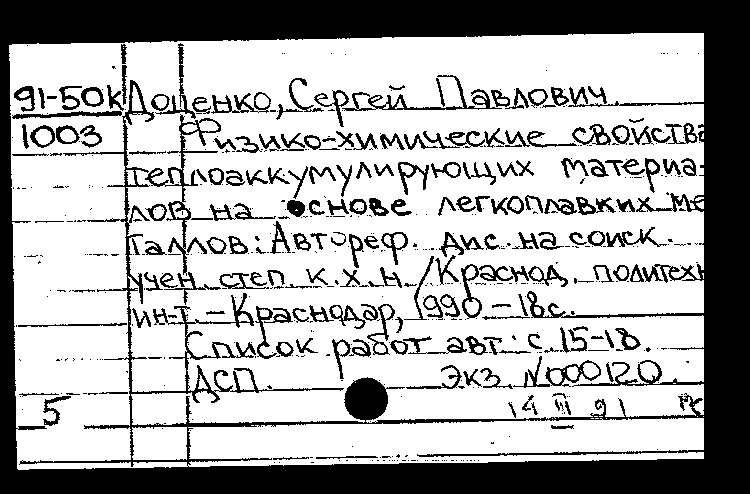 91-50к Доценко, Сергей Павлович.
1003 Физико-химические свойства
теплоаккумулирующих материа-
лов на основе легкоплавких ме
таллов: Автореф. дис. на соиск.
учен. степ. к.х.н. /Краснод. политехн
ин-т. – Краснодар, 1990 – 18с.
Список работ авт: с. 15-18.
ДСП. Экз. N000120.
5 14 III 91